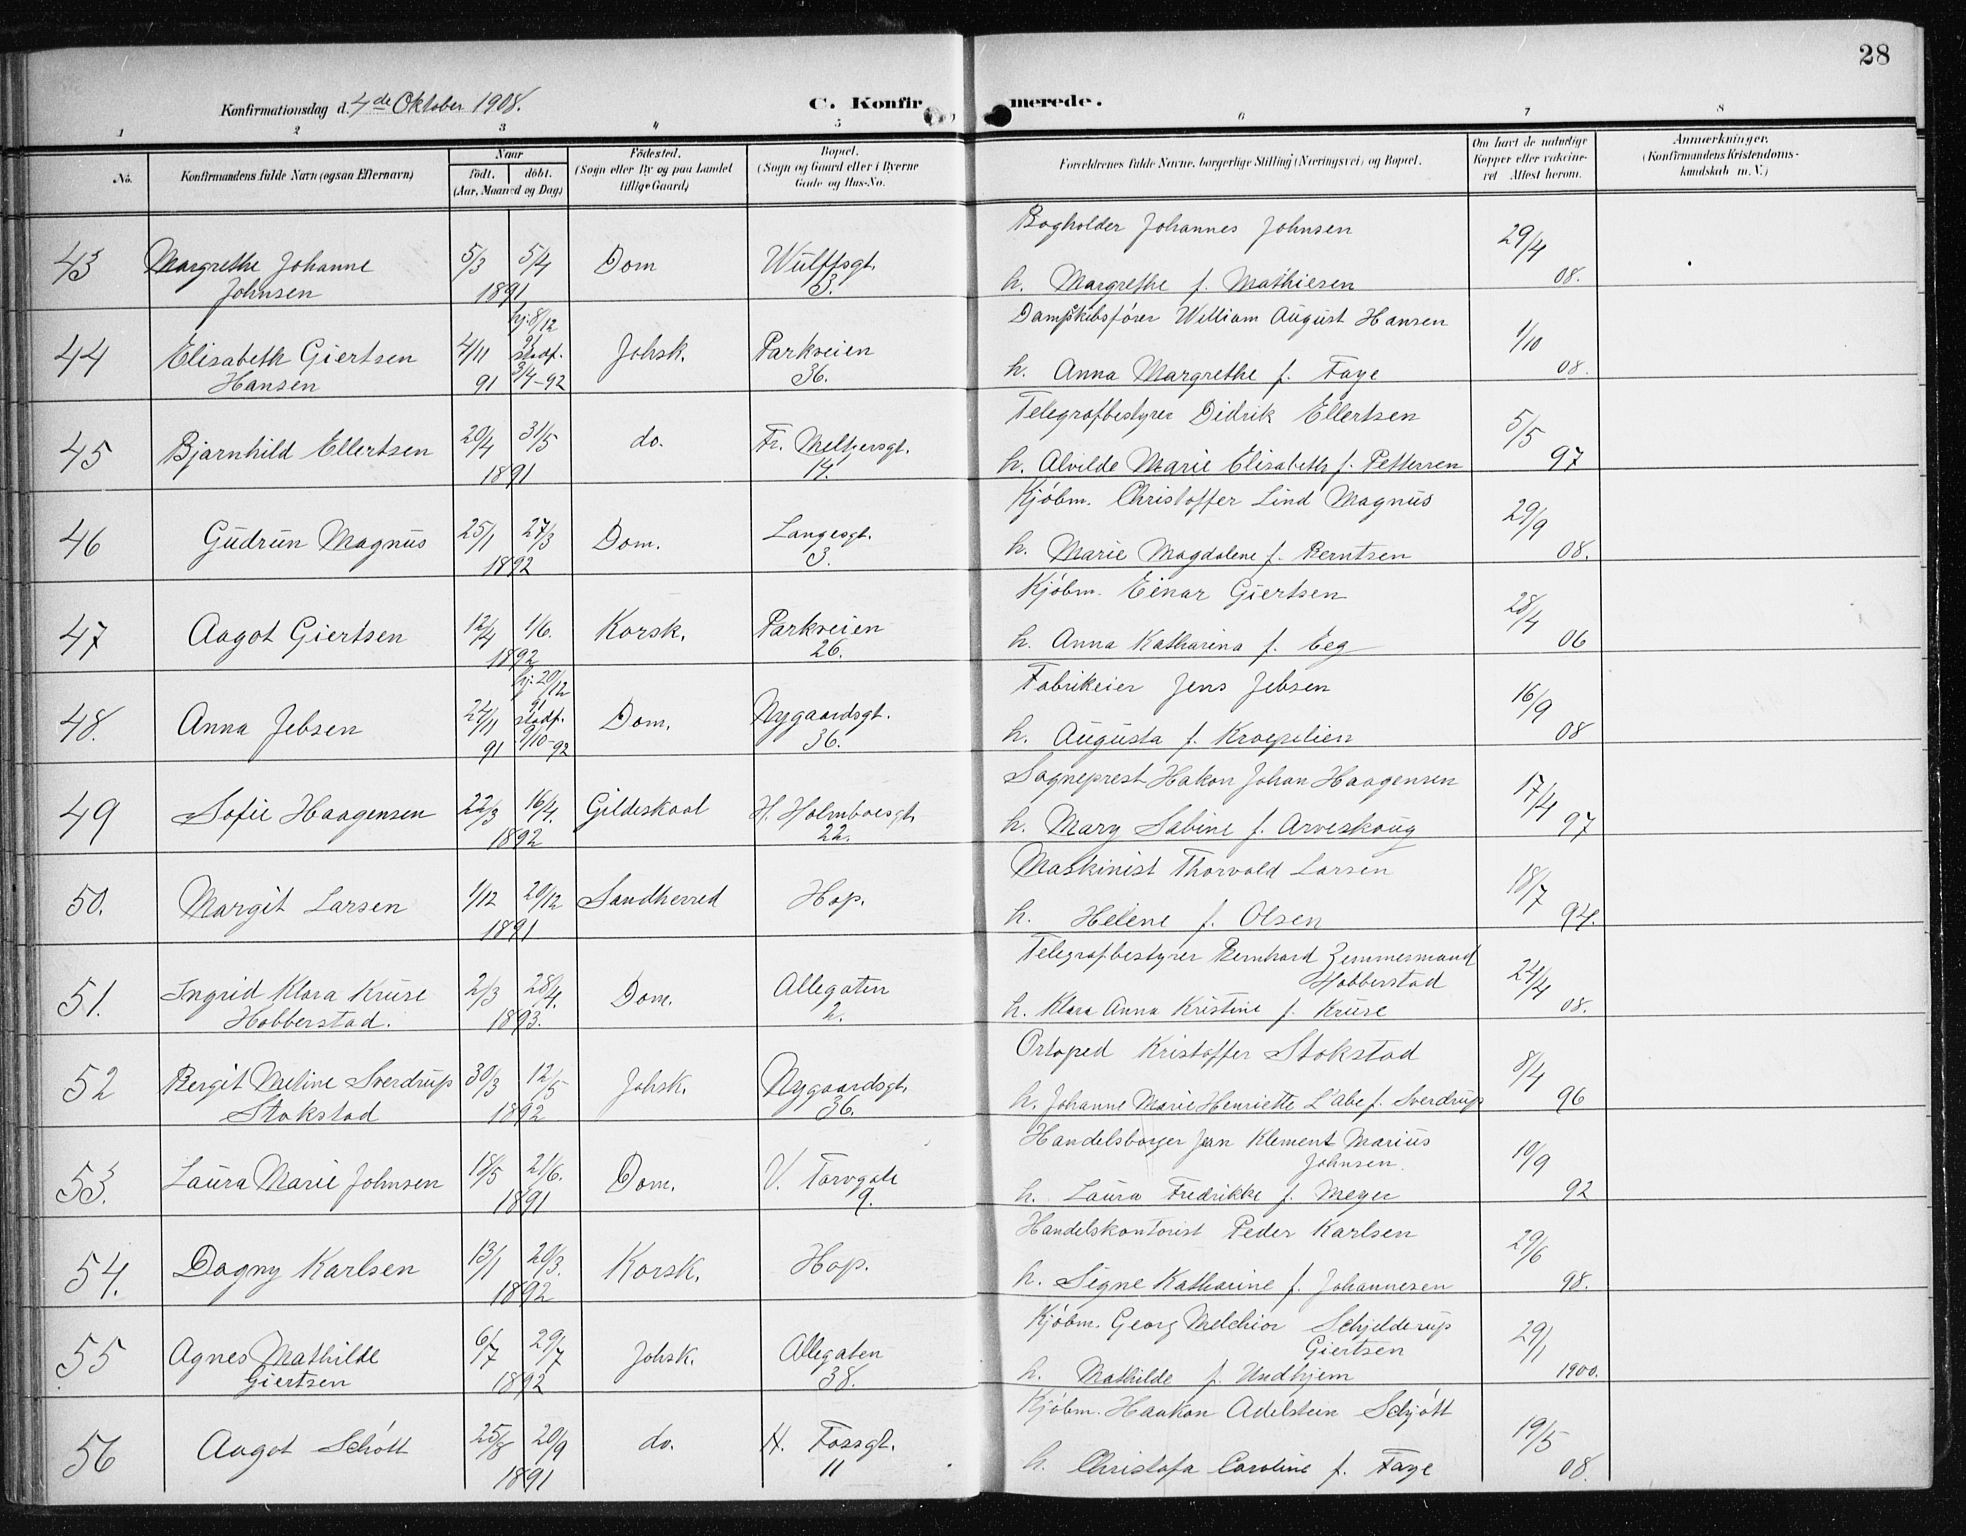 28
Konfirmationsdag d. 4de Oktober 1908.
C. Konfirmerede.
1 2 3 4 5 6 7 8
No.
Konfirmandens fulde Navn (ogsaa Efternavn)
Naar
født. døbt.
(Aar, Maaned og Dag)
Fødested.
(Sogn eller By og paa Landet
tillige Gaard)
Bopæl.
(Sogn og Gaard eller i Byerne
Gade og Hus-No.
Forældrenes fulde Navne, borgerlige Stilling (Næringsvei) og Bopæl.
Om havt de naturlige
Kopper eller vaccine-
ret Attest herom.
Anmærkninger.
(Konfirmandens Kristendoms-
kundskab m. V.)
Bogholder Johannes Johnsen
43 Margrethe Johanne 5/3 5/4 Dom Wulffsgt. 29/4
Johnsen 1891 3. h. Margrethe f. Mathiesen 08.
hj. 8/12 Dampskibsfører William August Hansen
91
44 Elisabeth Giertsen 4/11 stadf. Johsk. Parkveien 1/10
Hansen 91 3/4-92 36. h. Anna Margrethe f. Faye 08.
Telegrafbestyrer Didrik Ellertsen
45 Bjarnhild Ellertsen 20/4 31/5 do. Fr. Meltzersgt. 5/5
1891 14. h. Alvilde Marie Elisabeth f. Pettersen 97
Kjøbm. Christoffer Lind Magnus
46 Gudrun Magnus 25/1 27/3 Dom. Langesgt. 29/9
1892 3. h. Marie Magdalene f. Berntsen 08.
Kjøbm. Einar Giertsen
47 Aagot Giertsen 12/4 1/6. Korsk. Parkveien 28/4
1892 26. h. Anna Katharina f. Eeg 06
hj. 20/12 Fabrikeier Jens Jebsen
91
48. Anna Jebsen 24/11 stadf. Dom. Nygaardsgt. 16/9
91 9/10-92 36. h. Augusta f. Kroepelien 08
Sogneprest Hakon Johan Haagensen
49 Sofie Haagensen 22/3 16/4. Gildeskaal H. Holmboesgt. 17/4
1892 22. h. Mary Sabine f. Arveskoug 97
Maskinist Thorvald Larsen
50. Margit Larsen 1/12 20/12 Sandherred Hop. 18/7
1891 h. Helene f. Olsen 94.
Telegrafbestyrer Bernhard Zemmermand
Hobberstad
51. Ingrid Klara Kruse 2/3 28/4. Dom. Allegaten 24/4
Hobberstad. 1893. 2. h. Klara Anna Kristine f. Kruse 08.
Ortoped Kristoffer Stokstad
52 Bergit Meline Sverdrup 30/3 12/5 Johsk. Nygaardsgt. 8/4
Stokstad 1892 36. h. Johanne Marie Henriette L'Abe f. Sverdrup 96
Handelsborger Jean Klement Marius
Johnsen.
53. Laura Marie Johnsen 18/5 21/6. Dom. V. Torvgate 10/9
1891 9. h. Laura Fredrikke f. Meyer 92
Handelskontorist Peder Karlsen
54. Dagny Karlsen 13/1 20/3. Korsk. Hop. 29/6
1892 h. Signe Katharine f. Johannesen 98.
Kjøbm. Georg Melchior Schjelderup
Giertsen
55 Agnes Mathilde 6/7 29/7 Johsk. Allegaten 29/1
Giertsen 1892 38. h. Mathilde f. Undhjem 1900.
Kjøbm. Haakon Adelstein Schjøtt
56 Aagot Schøtt 25/8 20/9 do. N. Fossgt. 19/5
1891 11 h. Christofa Caroline f. Faye 08.